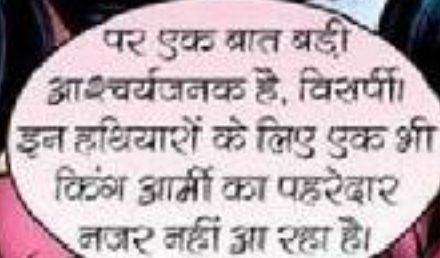 पर एक बात बड़ी
आश्चर्यजनक है, विसर्पी।
इन हथियारों के लिए एक भी
किंग आर्मी का पहरेदार
नजर नहीं आ रहा है।